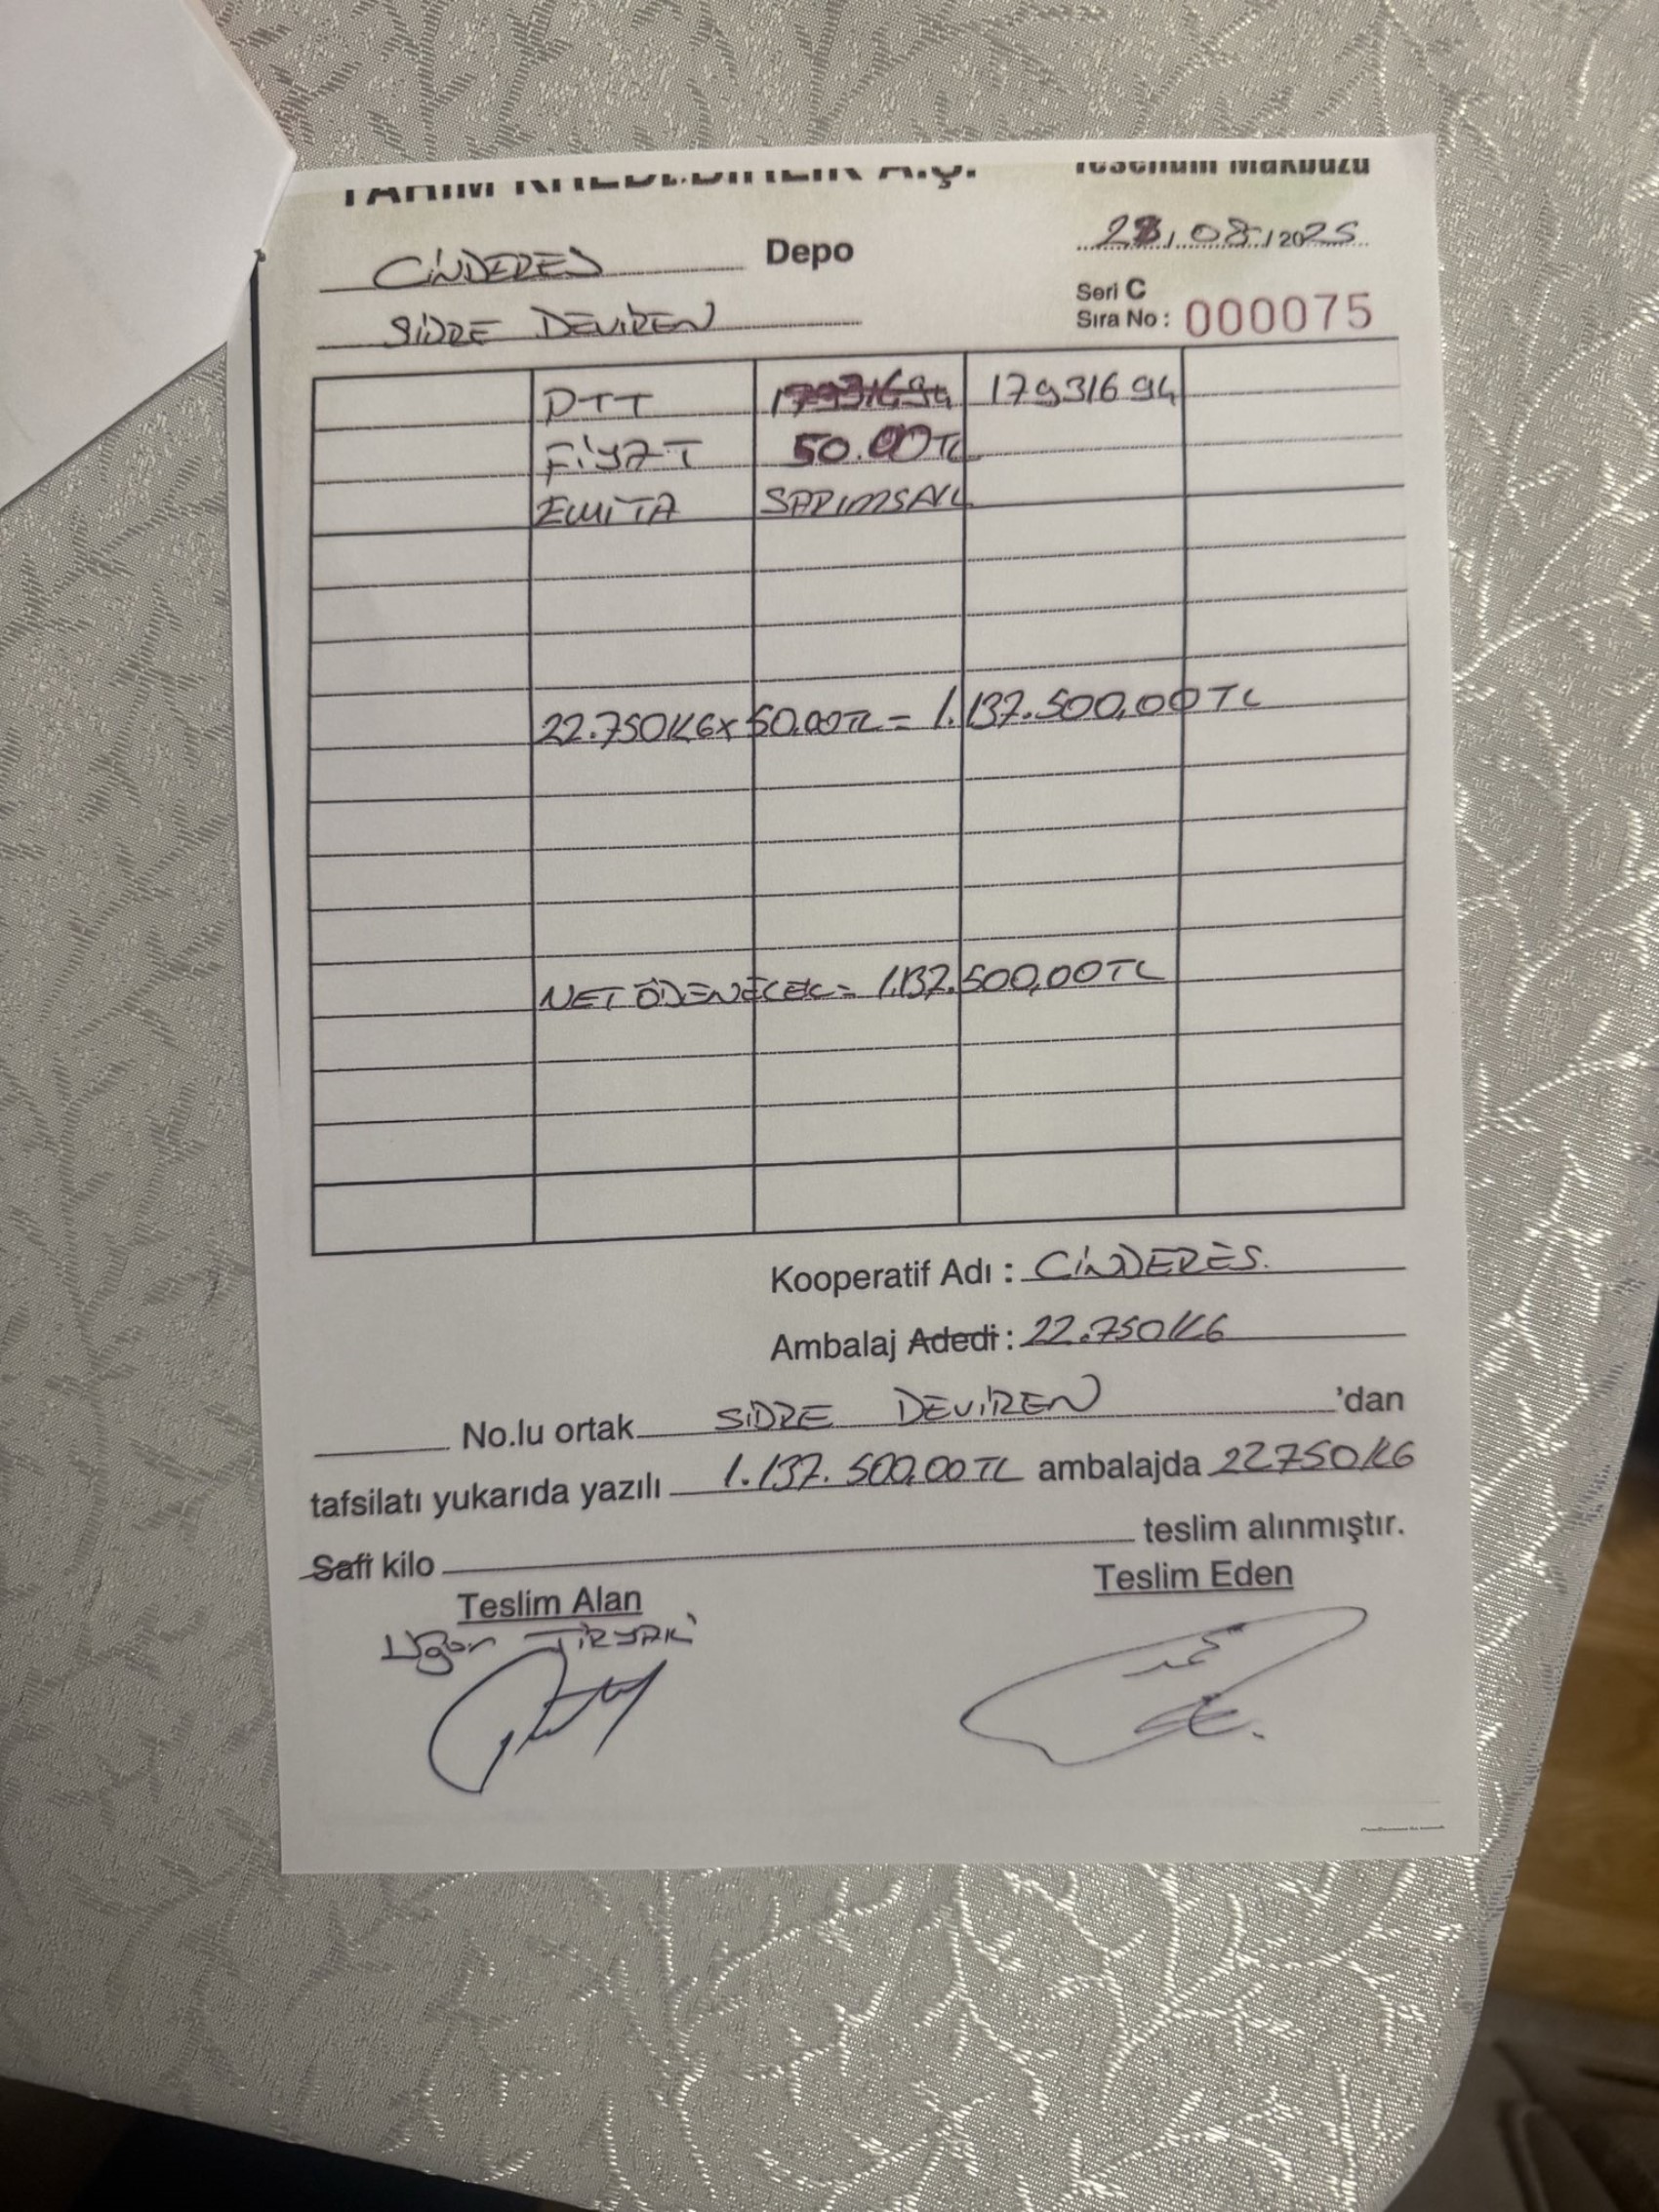 TARIM KREDİ BİRLİK A.Ş.
Tesellüm Makbuzu
CİNDERES Depo
28/08/2025
SİDRE DEVİREN
Seri C
Sıra No: 000075
PTT 17931694 17931694
FİYAT 50.00TL
EMTİA SARIMSAK
22.750KG x 50.00TL = 1.137.500,00 TL
NET ÖDENECEK = 1.137.500,00 TL
Kooperatif Adı : CİNDERES.
Ambalaj Adedi : 22.750KG
No.lu ortak SİDRE DEVİREN 'dan
tafsilatı yukarıda yazılı 1.137.500,00 TL ambalajda 22750KG
Safi kilo teslim alınmıştır.
Teslim Alan Teslim Eden
Uğur TİRYAKİ